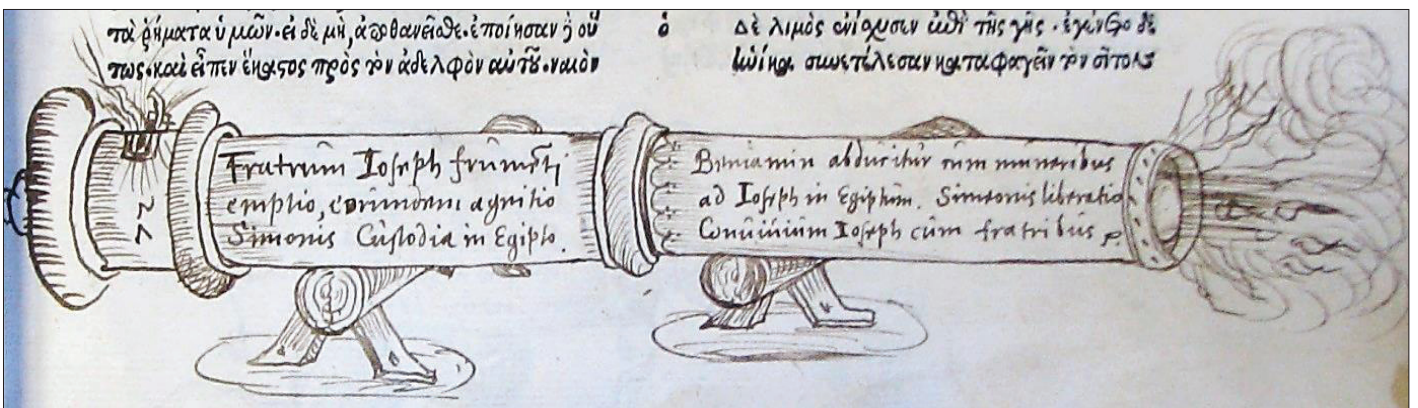 τὰ ῥήματα ὑμῶν· εἰ δὲ μὴ, ἀποθανεῖσθε· ἐποίησαν δὲ οὕ
τως· καὶ εἶπεν ἕκαστος πρὸς τὸν ἀδελφὸν αὐτοῦ·
ὁ δὲ λιμὸς ἐνίσχυσεν ἐπὶ τῆς γῆς· ἐγένετο δὲ
ἡνίκα συνετέλεσαν καταφαγεῖν τὸν σῖτον
22
Fratrum Ioseph frumēti
emptio, eorundem agnitio
Simonis Custodia in Egipto.
Beniamin abducitur cum muneribus
ad Ioseph in Egiptum. Simeonis liberatio
Conuiuium Ioseph cum fratribus